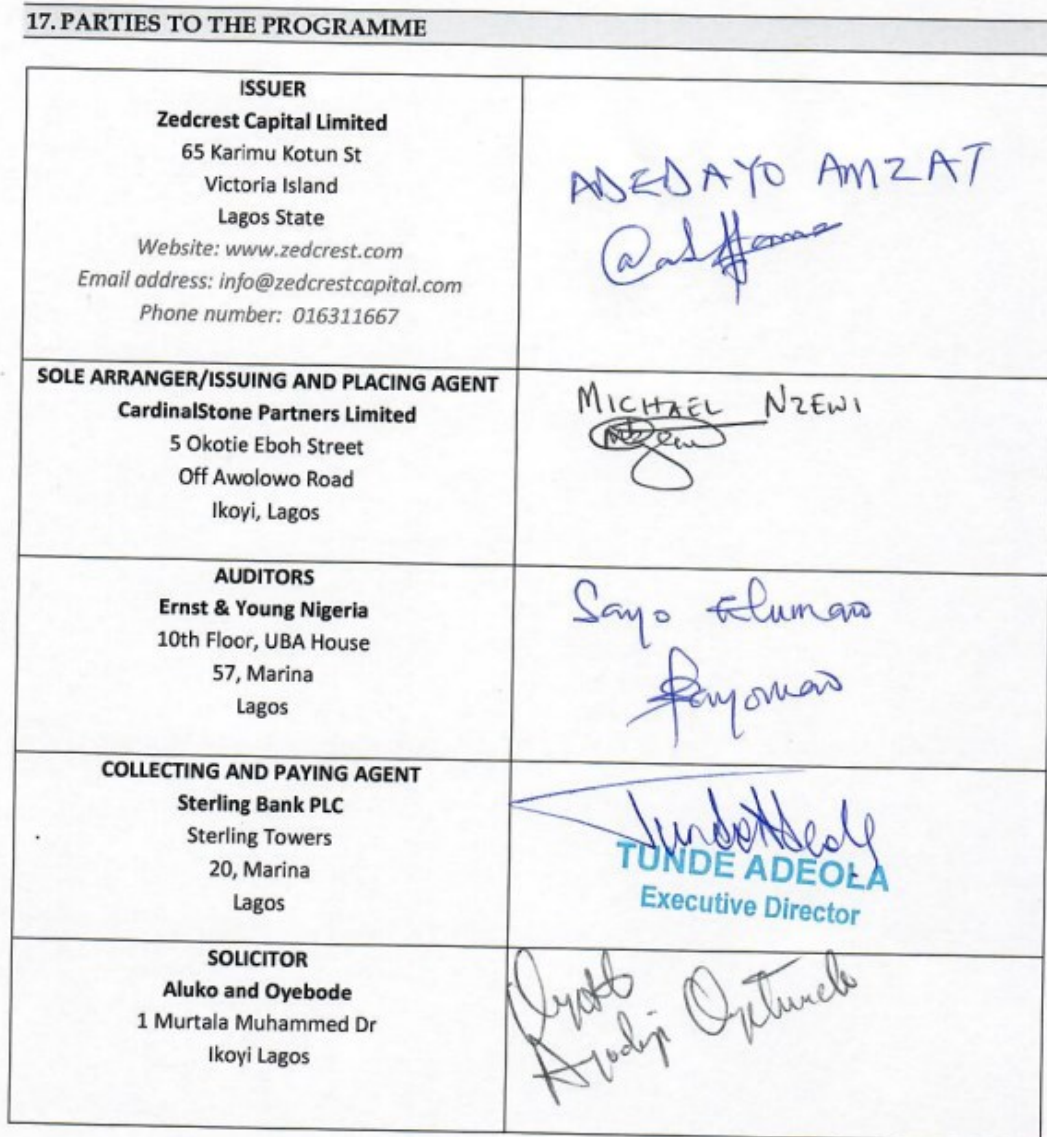 17. PARTIES TO THE PROGRAMME
ISSUER
Zedcrest Capital Limited
65 Karimu Kotun St
Victoria Island
Lagos State
Website: www.zedcrest.com
Email address: info@zedcrestcapital.com
Phone number: 016311667
ADEDAYO AMZAT
SOLE ARRANGER/ISSUING AND PLACING AGENT
CardinalStone Partners Limited
5 Okotie Eboh Street
Off Awolowo Road
Ikoyi, Lagos
MICHAEL NZEWI
AUDITORS
Ernst & Young Nigeria
10th Floor, UBA House
57, Marina
Lagos
Sayo Elumaro
COLLECTING AND PAYING AGENT
Sterling Bank PLC
Sterling Towers
20, Marina
Lagos
TUNDE ADEOLA
Executive Director
SOLICITOR
Aluko and Oyebode
1 Murtala Muhammed Dr
Ikoyi Lagos
Ayodeji Oyetunde